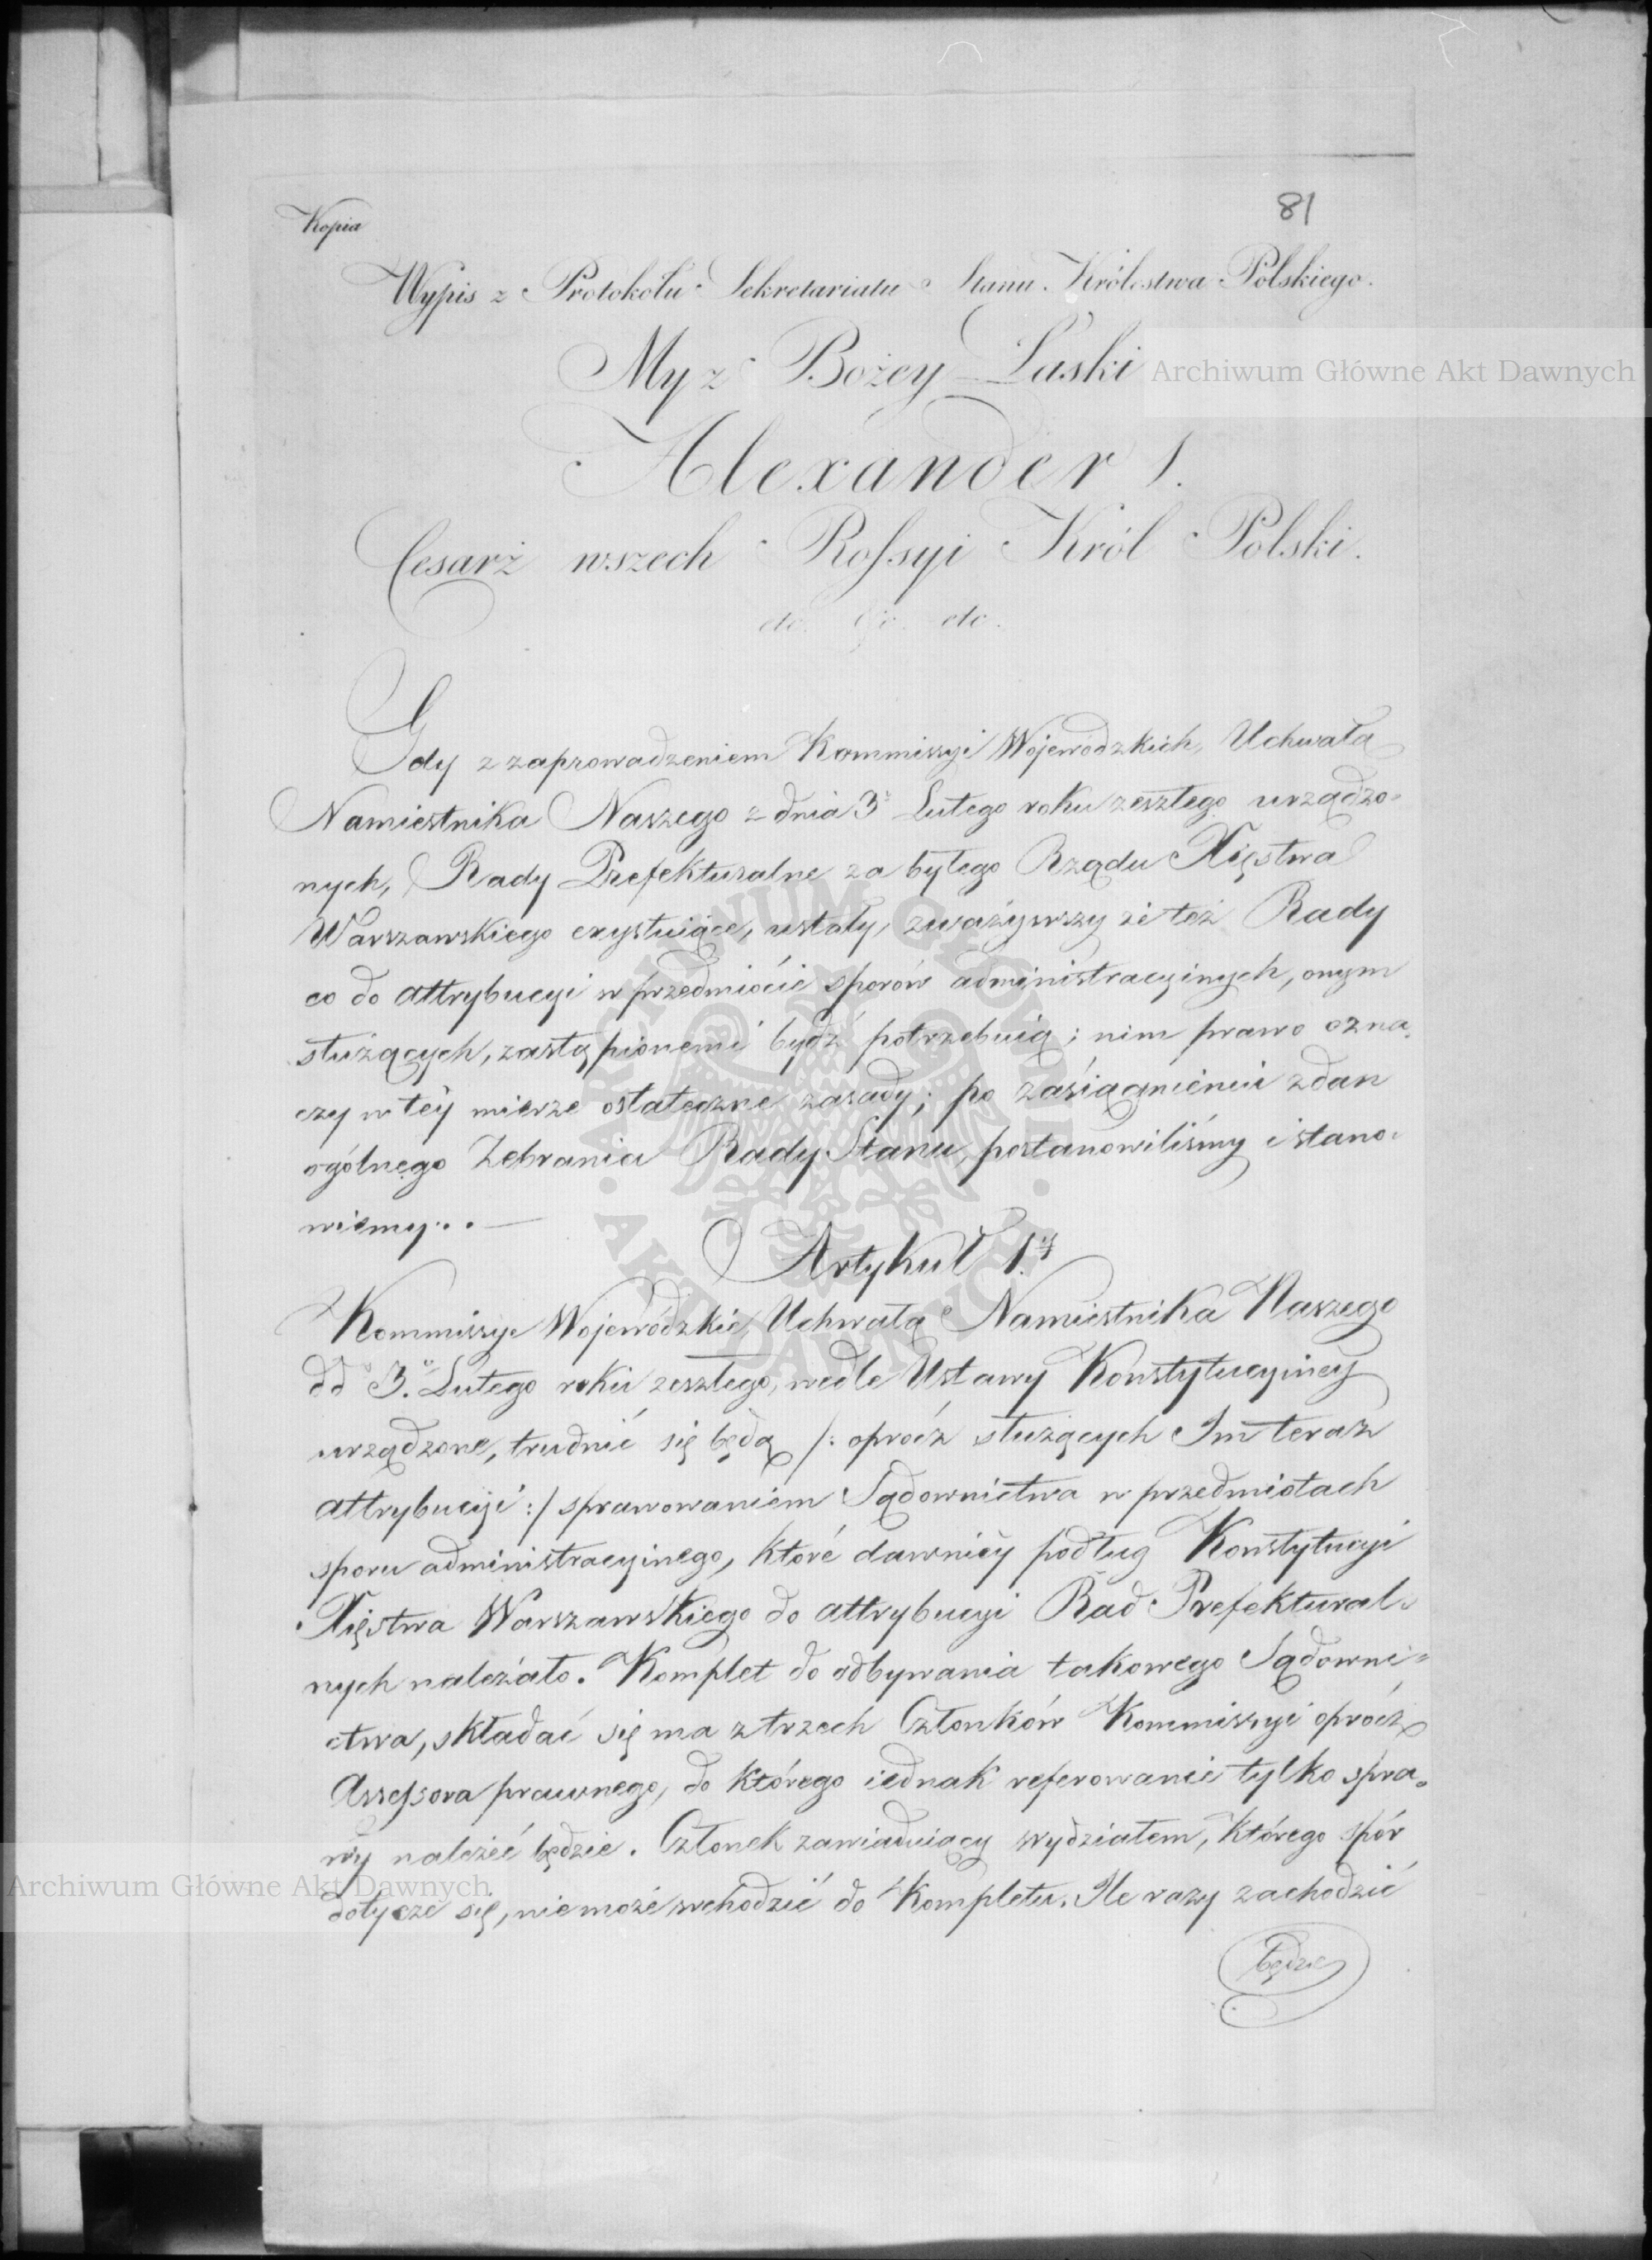 81
Kopia
Wypis z Protokołu Sekretariatu Stanu Królestwa Polskiego.
My z Bożey Łaski
Archiwum Główne Akt Dawnych
Alexander I.
Cesarz wszech Rossyi Król Polski.
etc. etc. etc.
Gdy z zaprowadzeniem Kommissyi Wojewódzkich, Uchwałą
Namiestnika Naszego z dnia 3º Lutego roku zeszłego urządzo-
nych, Rady Prefekturalne za byłego Rządu Xięstwa
Warszawskiego exystuiące, ustały, zważywszy że też Rady
co do attrybucyi w przedmiocie sporów administracyinych, onym
służących, zastąpionemi bydź potrzebuią; nim prawo ozna-
czy w tey mierze ostateczne zasady; po zasiągnieniu zdan
ogólnego Zebrania Rady Stanu, postanowiliśmy i stano-
wiemy...
Artykuł 1.y
Kommissye Wojewódzkie, Uchwałą Namiestnika Naszego
dd° 3.° Lutego roku zeszłego, wedle Ustawy Konstytucyiney
urządzone, trudnić się będą /: oprócz służących Im teraz
attrybucyi :/ sprawowaniem Sądownictwa w przedmiotach
sporu administracyinego, które dawniey podług Konstytucyi
Xięstwa Warszawskiego do attrybucyi Rad Prefektural-
nych należało. Komplet do odbywania takowego Sądowni-
ctwa, składać się ma z trzech Członków Kommissyi oprócz
Assessora prawnego, do którego iednak referowanie tylko spra-
wy należeć będzie. Członek zawiaduiący wydziałem, którego spór
Archiwum Główne Akt Dawnych
dotycze się, nie może wchodzić do Kompletu. Ile razy zachodzić
będzie
ARCHIWUM GŁÓWNE · AKT DAWNYCH ·